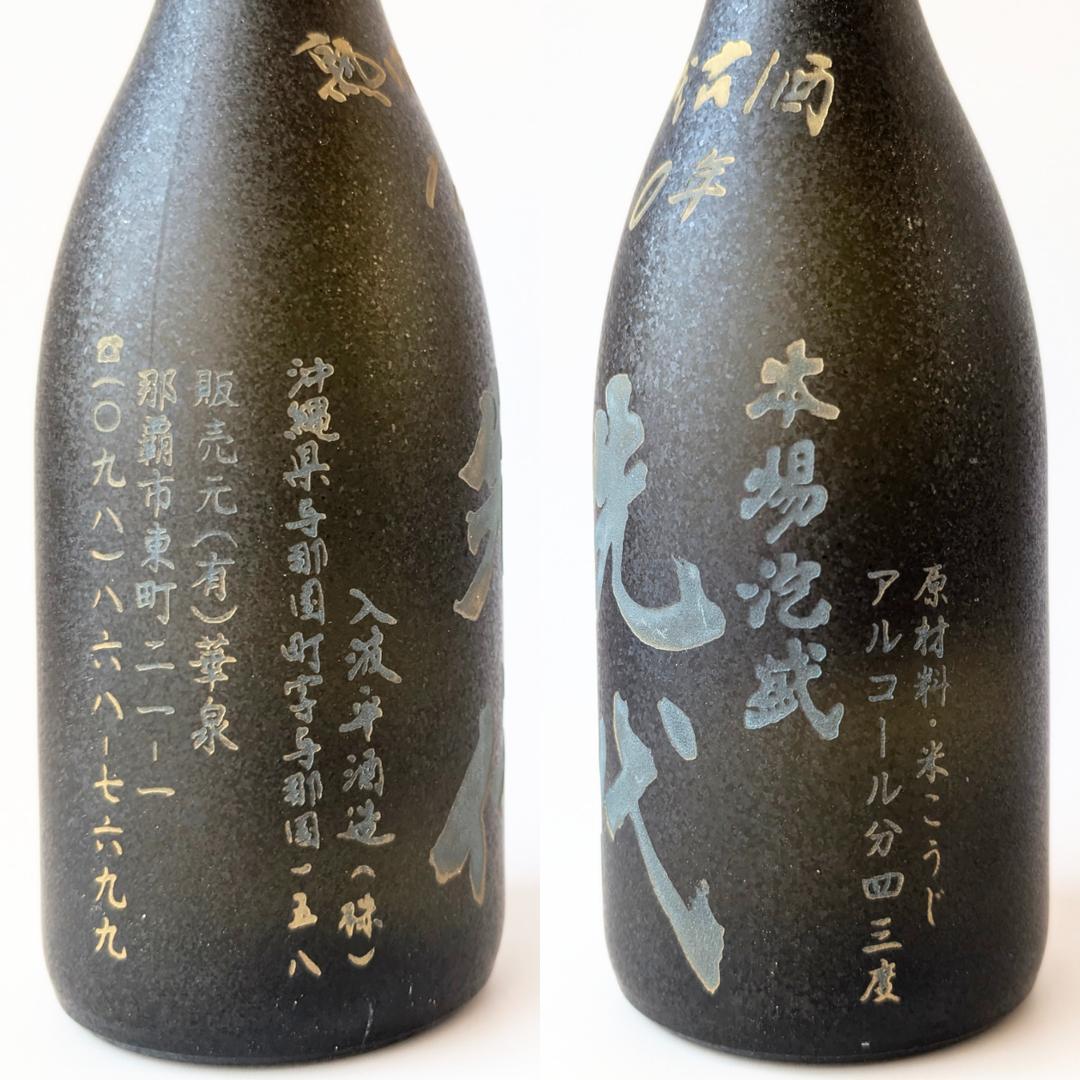 熟
1
入波平酒造(株)
沖縄県与那国町字与那国一五八
販売元(有)華泉
那覇市東町二一-一
☎(〇九八)八六八-七六九九
古酒
0年
原材料・米こうじ
アルコール分四三度
本場泡盛
先代